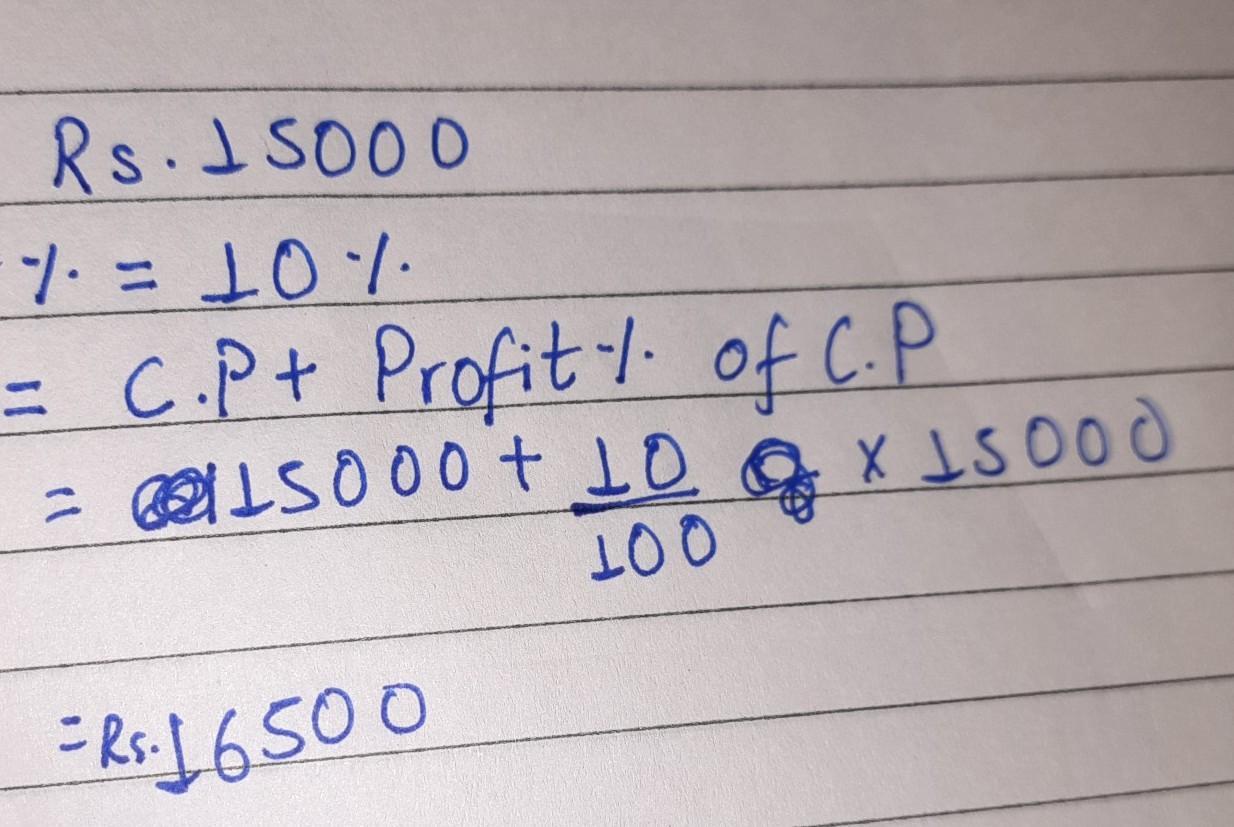 Rs. 15000
% = 10%
= C.P + Profit % of C.P
= 15000 + 10/100 × 15000
= Rs. 16500